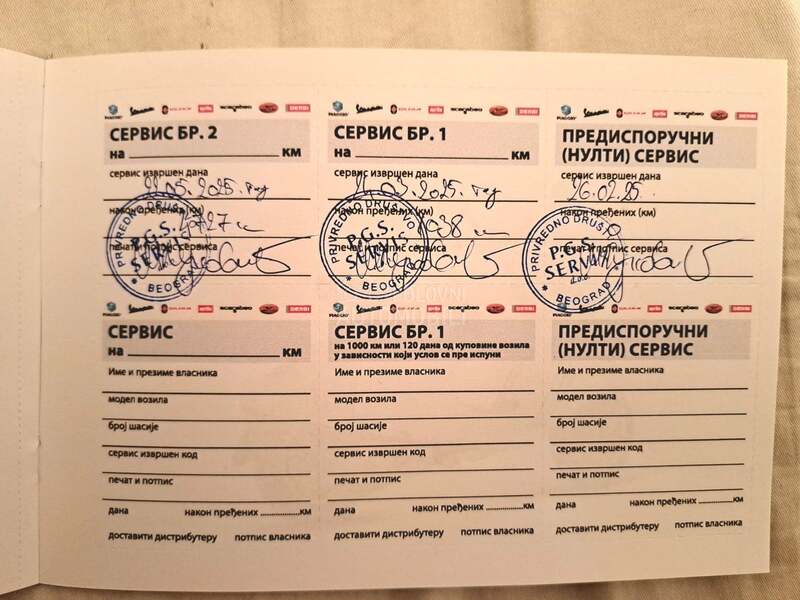 СЕРВИС БР. 2
на ____________ КМ
сервис извршен дана
21.05.2025. год
након пређених (км)
печат и потпис сервиса
PRIVREDNO DRUŠTVO
P.G.S.
SERVIS
BEOGRAD
СЕРВИС БР. 1
на ____________ КМ
сервис извршен дана
03.2025. год
након пређених (км)
печат и потпис сервиса
PRIVREDNO DRUŠTVO
P.G.S.
SERVIS
BEOGRAD
ПРЕДИСПОРУЧНИ
(НУЛТИ) СЕРВИС
сервис извршен дана
26.02.25.
након пређених (км)
печат и потпис сервиса
PRIVREDNO DRUŠTVO
P.G.S.
SERVIS
d.o.o.
BEOGRAD
СЕРВИС
на ____________ КМ
Име и презиме власника
модел возила
број шасије
сервис извршен код
печат и потпис
дана након пређених ..................км
доставити дистрибутеру потпис власника
СЕРВИС БР. 1
на 1000 км или 120 дана од куповине возила
у зависности који услов се пре испуни
Име и презиме власника
модел возила
број шасије
сервис извршен код
печат и потпис
дана након пређених ..................км
доставити дистрибутеру потпис власника
ПРЕДИСПОРУЧНИ
(НУЛТИ) СЕРВИС
Име и презиме власника
модел возила
број шасије
сервис извршен код
печат и потпис
дана након пређених ..................км
доставити дистрибутеру потпис власника